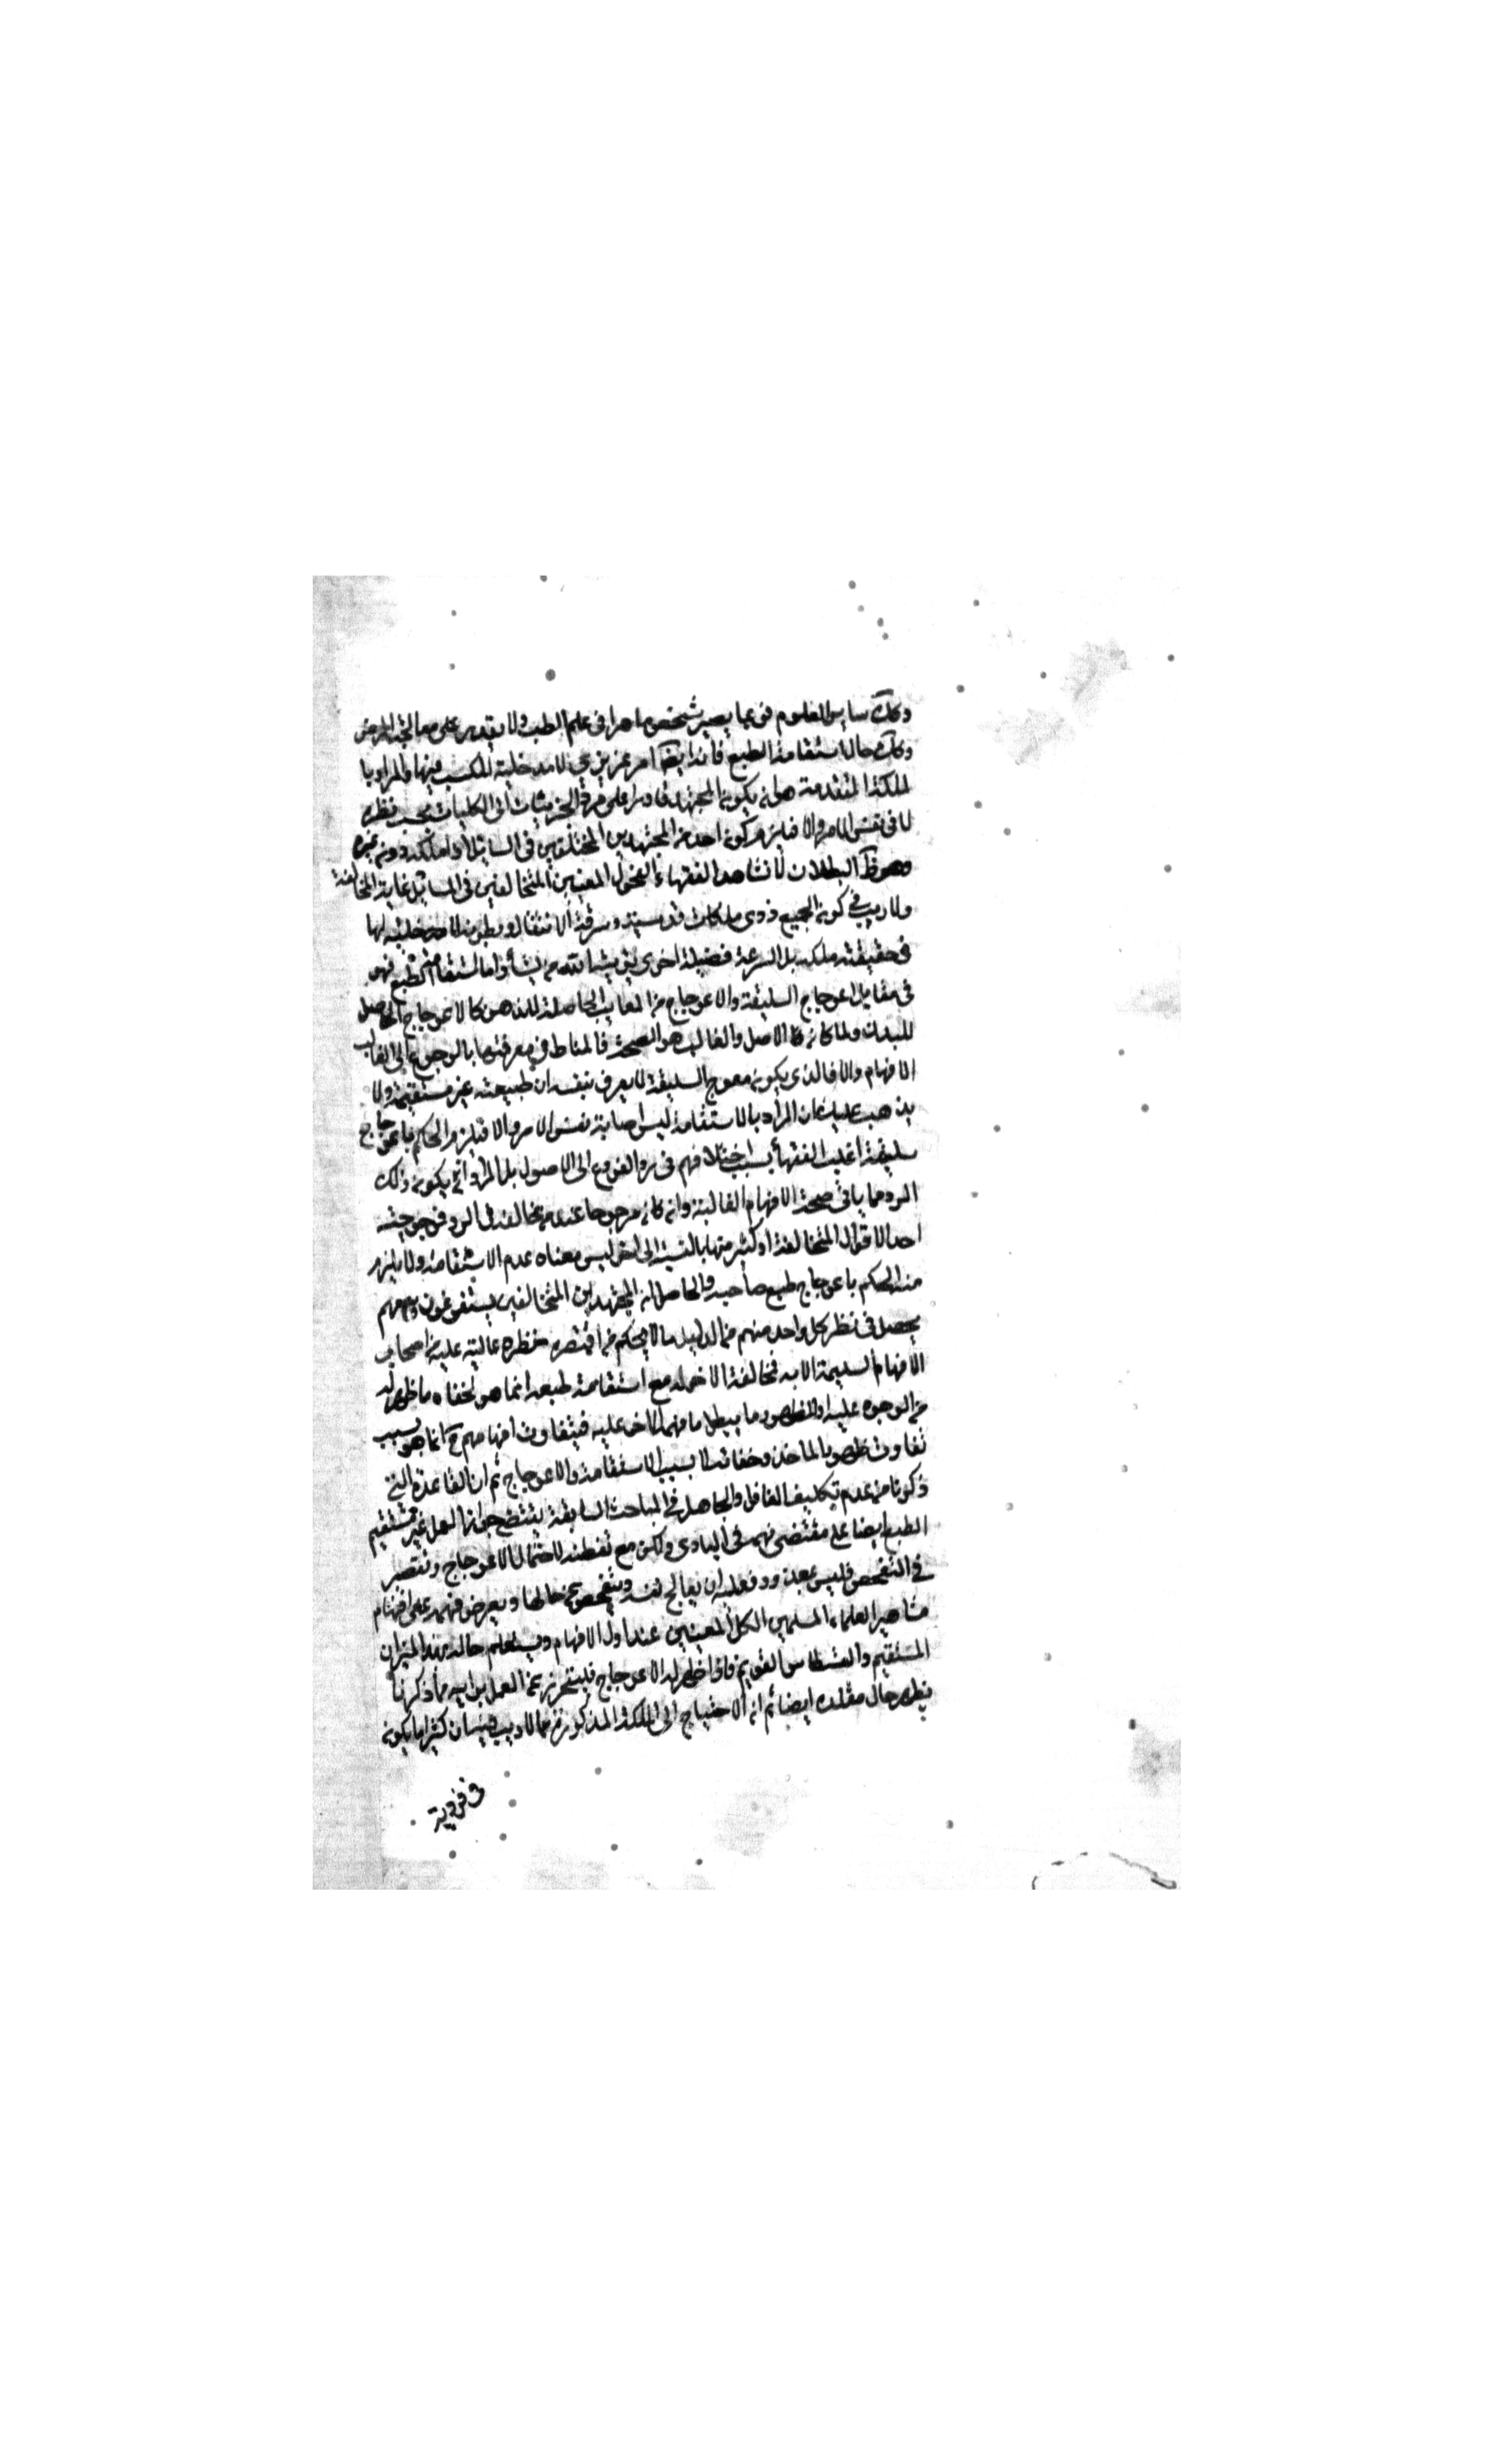 وكذلك ساير العلوم فربما يصير شخص ماهرا فى علم الطب ولا يقدر على معالجة المرض
وكذلك حال استقامة الطبع فانه ايضا امر غريزى لا مدخلية للكسب فيها والمراد با
لملكة المتقدمة هو ان يكون المجتهد قادرا على رد الجزئيات الى الكليات بحسب نظره
لا فى نفس الامر والا فيلزم كون احد من المجتهدين المختلفين فى المسائل ذا ملكة دون غيره
وهو ظ البطلان لانا نشاهد الفقهاء الفحول المعتبرين المتخالفين فى المسائل غاية المخالفة
ولا ريب فى كون الجميع ذوى ملكات قدسية وسرعة الانتقال وبطوئه لا مدخلية لها
فى حقيقته ملكة بل السرعة فضيلة اخرى يؤتيها الله من يشأ واما استقامة الطبع فهى
فى مقابل اعوجاج السليقة والاعوجاج من المعايب الحاصلة للذهن كالاعوجاج الحاصل
للبدن ولما كان الاصل والغالب هو الصحة فالمناط فى معرفتهما بالرجوع الى الغالب
الافهام والا فالذى يكون معوج السليقة لا يعرف بنفسه ان طبيعته غير مستقيمة ولا
يذهب عليك ان المراد بالاستقامة ليس اصابة نفس الامر والا فيلزم الحكم باعوجاج
سليقة اغلب الفقهأ بسبب اختلافهم فى رد الفروع الى الاصول بل المراد ان يكون ذلك
الرد مما ياتى صحة الافهام الغالبة وان كان مرجوحا عند من يخالفه فى الرد فمرجوحيته
احد الاقوال المتخالفة او كثير منها بالنسبة الى اخر ليس معناه عدم الاستقامة ولا يلزم
منه الحكم باعوجاج طبع صاحبه والحاصل ان المجتهدين المتخالفين يستفرغون وسعهم
يحصل فى نظر كل واحد منهم من الدليل ما لا يحكم من اقتصر نظره عليه من اصحاب
الافهام السليمة الا به فمخالفة الاخر له مع استقامة طبعه انما هو لخفاء ما ظهر له
من الوجوه عليه او لظهور ما يبطل ما فهمه الاخر عليه فيتفاوت افهامهم ح انما هو بسبب
تفاوت ظهور الماخذ وخفائه لا بسبب الاستقامة والاعوجاج ثم ان القاعدة التى
ذكرنا من عدم تكليف الغافل والجاهل فى المباحث السابقة يقتضى جواز العمل غير مستقيم
الطبع ايضا على مقتضى فهمه فى البادى ولكن مع تفطنه لاحتمال الاعوجاج وتقصير
فى التفحص فليس بمعذور فعليه ان يعالج نفسه ويتفحص عن حالها ويعرض فهمه على افهام
مشاهير العلماء المسلمين الكل المعتبرين عند اولى الافهام ويستعلم حاله بهذا الميزان
المستقيم والقسطاس القويم فاذا ظهر له الاعوجاج فليتحرز عن العمل برايه مما ذكرنا
يظهر حال مقلده ايضا ثم ان الاحتياج الى الملكة المذكورة مما لا ريب فيه فان كثيرا ما يكون